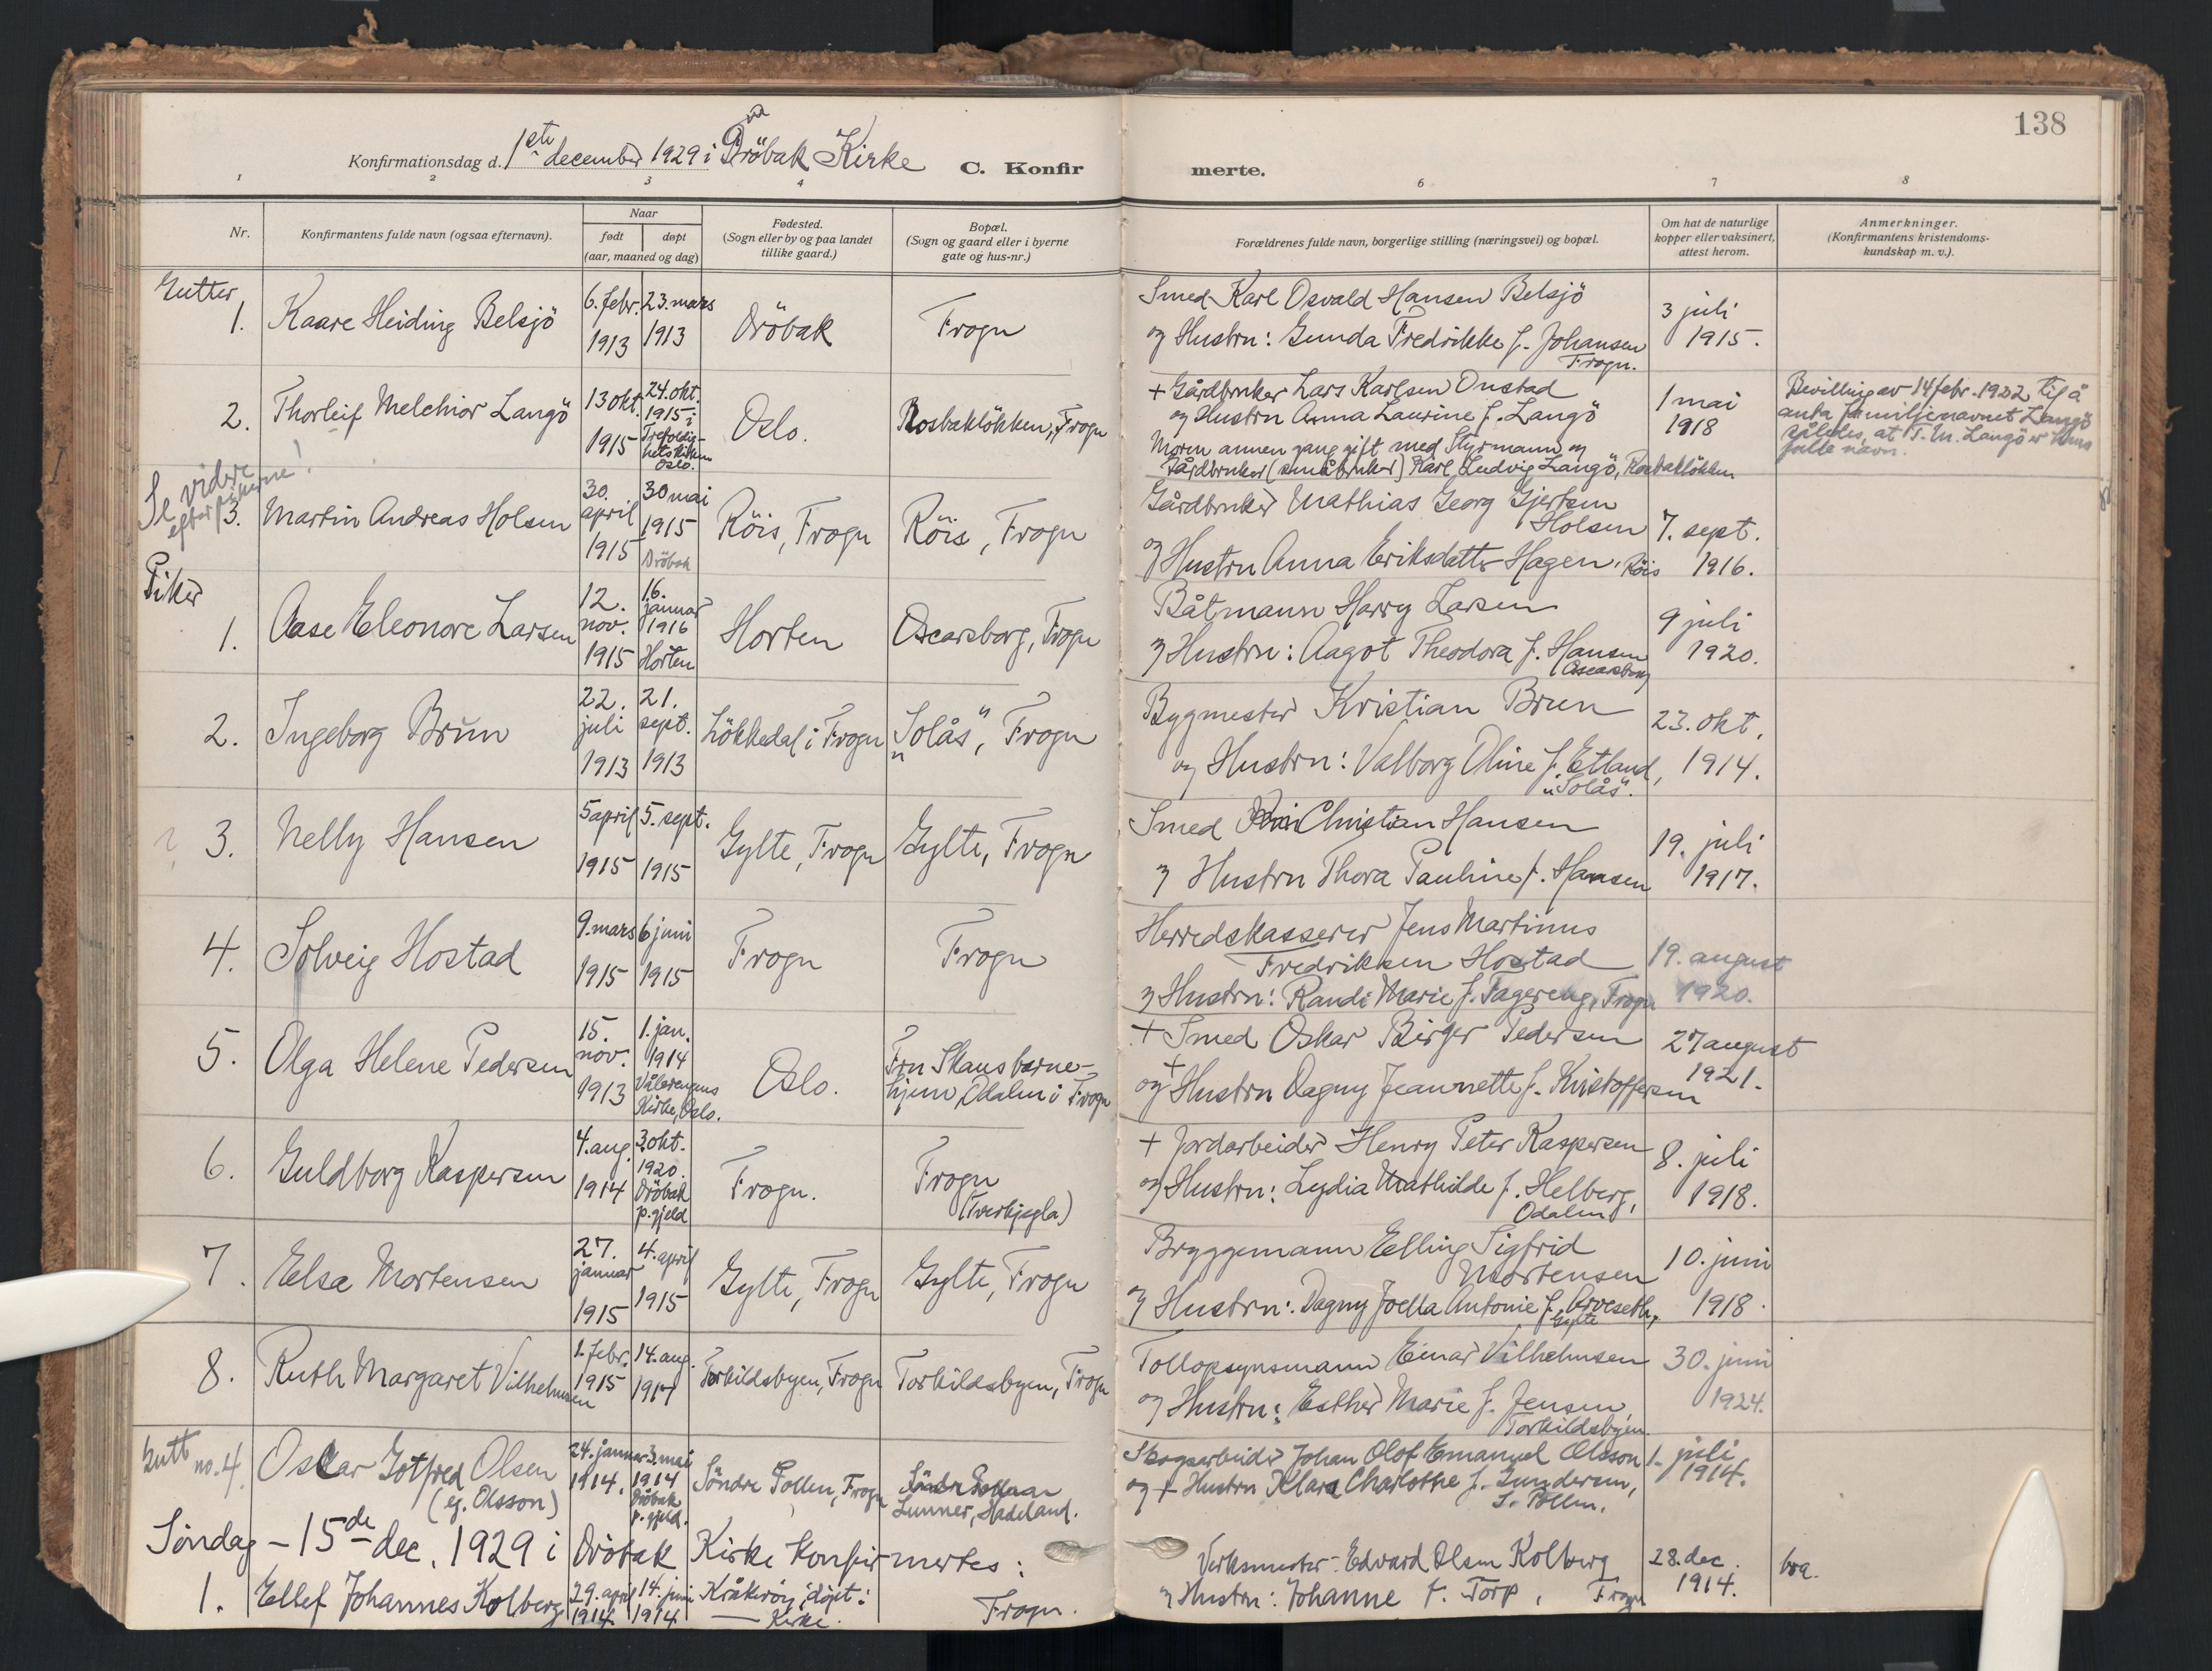 138
Konfirmationsdag d. 1ste december 1929 i Dröbak Kirke C. Konfirmerte.
1 2 3 4 6 7 8
Nr.
Konfirmantens fulde navn (ogsaa efternavn).
Naar
født døpt
(aar, maaned og dag)
Fødested.
(Sogn eller by og paa landet
tillike gaard.)
Bopæl.
(Sogn og gaard eller i byerne
gate og hus-nr.)
Forældrenes fulde navn, borgerlige stilling (næringsvei) og bopæl.
Om hat de naturlige
kopper eller vaksinert,
attest herom.
Anmerkninger.
(Konfirmantens kristendoms-
kundskap m. v.).
Gutter
1. Kaare Heiding Belsjö
6. febr. 1913
23. mars 1913
Dröbak
Frogn
Smed Karl Osvald Hansen Belsjö
og Hustru: Gunda Fredrikke f. Johansen
Frogn.
3 juli
1915.
2. Thorleif Melchior Langö
13 okt. 1915
24. okt.
1915 i
Trefoldig-
hetskirken
Oslo.
Oslo.
Rosbakløkken, Frogn
+ Gårdbruker Lars Karlsen Onstad
og Hustru Anna Laurine f. Langö
Moren annen gang gift med Styrmann og
Gårdbruker (småbruker) Karl Ludvig Langö, Rosbakløkken
1 mai
1918
Bevilling av 14 febr. 1922 til å
anta familienavnet Langö
således, at T. M. Langö er hans
fulde navn.
Se videre
efter pikerne!
3. Martin Andreas Holsen
30.
april
1915
30 mai
1915
Dröbak
Röis, Frogn
Röis, Frogn
Gårdbruker Mathias Georg Gjertsen
Holsen
og Hustru Anna Eriksdatter Hagen, Röis
7. sept.
1916.
Piker
1. Aase Eleonore Larsen
12.
nov.
1915
16.
januar
1916
Horten
Horten
Oscarsborg, Frogn
Båtmann Harry Larsen
og Hustru: Aagot Theodora f. Hansen
(Oscarsborg)
9 juli
1920.
2. Ingeborg Brun
22.
juli
1913
21.
sept.
1913
Lökkedal i Frogn
"Solås", Frogn
Bygmester Kristian Brun
og Hustru: Valborg Oline f. Etland,
"Solås".
23. okt.
1914.
3. Nelly Hansen
5 april
1915
5. sept.
1915
Gylte, Frogn
Gylte, Frogn
Smed Christian Hansen
og Hustru Thora Pauline f. Hansen
19. juli
1917.
4. Solveig Hostad
9. mars
1915
6 juni
1915
Frogn
Frogn
Herredskasserer Jens Martinus
Fredriksen Hostad
og Hustru: Randi Marie f. Fagereng, Frogn
19. august
1920.
5. Olga Helene Pedersen
15.
nov.
1913
1. jan.
1914
Vålerengens
Kirke, Oslo.
Oslo.
Fru Skaus barne-
hjem, Odalen i Frogn
+ Smed Oskar Birger Pedersen
og + Hustru Dagny Jeannette f. Kristoffersen
27 august
1921.
6. Guldborg Kaspersen
4. aug.
1914
3 okt.
1920
Dröbak
p. gjeld
Frogn.
Frogn
(Tverkjegla)
+ Jordarbeider Henry Peter Kaspersen
og Hustru: Lydia Mathilde f. Helberg,
Odalen
8. juli
1918.
7. Elsa Mortensen
27.
januar
1915
4. april
1915
Gylte, Frogn
Gylte, Frogn
Bryggemann Elling Sigfrid
Mortensen
og Hustru: Dagny Joella Antonie f. Arveseth,
Gylte
10. juni
1918.
8. Ruth Margaret Vilhelmsen
1. febr.
1915
14. aug.
1917
Torkildsbyen, Frogn
Torkildsbyen, Frogn
Tollopsynsmann Einar Vilhelmsen
og Hustru: Esther Marie f. Jensen
Torkildsbyen.
30. juni
1924.
Gutt no. 4.
Oscar Gotfred Olsen
(eg. Olsson)
24. januar
1914.
3. mai
1914
Dröbak
p. gjeld.
Söndre Pollen, Frogn
Söndre Pollen
Lunner, Hadeland.
Skogsarbeider Johan Olof Emanuel Olsson
og + Hustru Klara Charlotte f. Gundersen,
S. Pollen.
1. juli
1914.
Söndag - 15de dec. 1929 i Dröbak Kirke konfirmertes:
1. Ellef Johannes Kolberg
29. april
1914
14. juni
1914
Kråkeröy, döpt i
— Kirke.
Frogn.
Verksmester Edvard Olsen Kolberg
og Hustru: Johanne f. Torp, Frogn
28. dec.
1914.
bra.